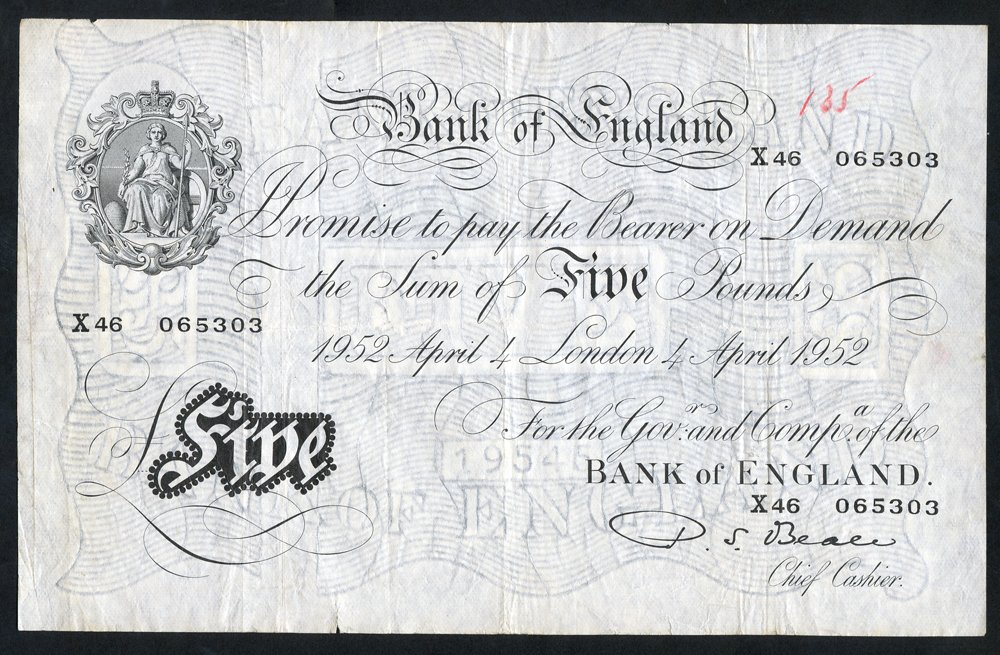 Bank of England
135
X46 065303
I Promise to pay the Bearer on Demand
the Sum of Five Pounds
X46 065303
1952 April 4 London 4 April 1952
Five
For the Gov.r and Comp.a of the
BANK of ENGLAND.
X46 065303
P. S. Beale
Chief Cashier.
OF ENGLAND